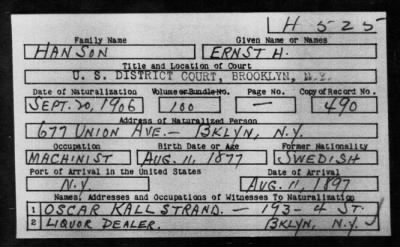 H 525
Family Name Given Name or Names
HANSON ERNST H.
Title and Location of Court
U. S. DISTRICT COURT, BROOKLYN, N.Y.
Date of Naturalization Volume or Bundle No. Page No. Copy of Record No.
SEPT. 20, 1906 100 — 490
Address of Naturalized Person
677 UNION AVE. — BKLYN, N.Y.
Occupation Birth Date or Age Former Nationality
MACHINIST AUG. 11, 1877 SWEDISH
Port of Arrival in the United States Date of Arrival
N.Y. AUG. 11, 1897
Names, Addresses and Occupations of Witnesses To Naturalization
1 OSCAR KALLSTRAND. — 193 - 4 ST.
2 LIQUOR DEALER. BKLYN, N.Y.